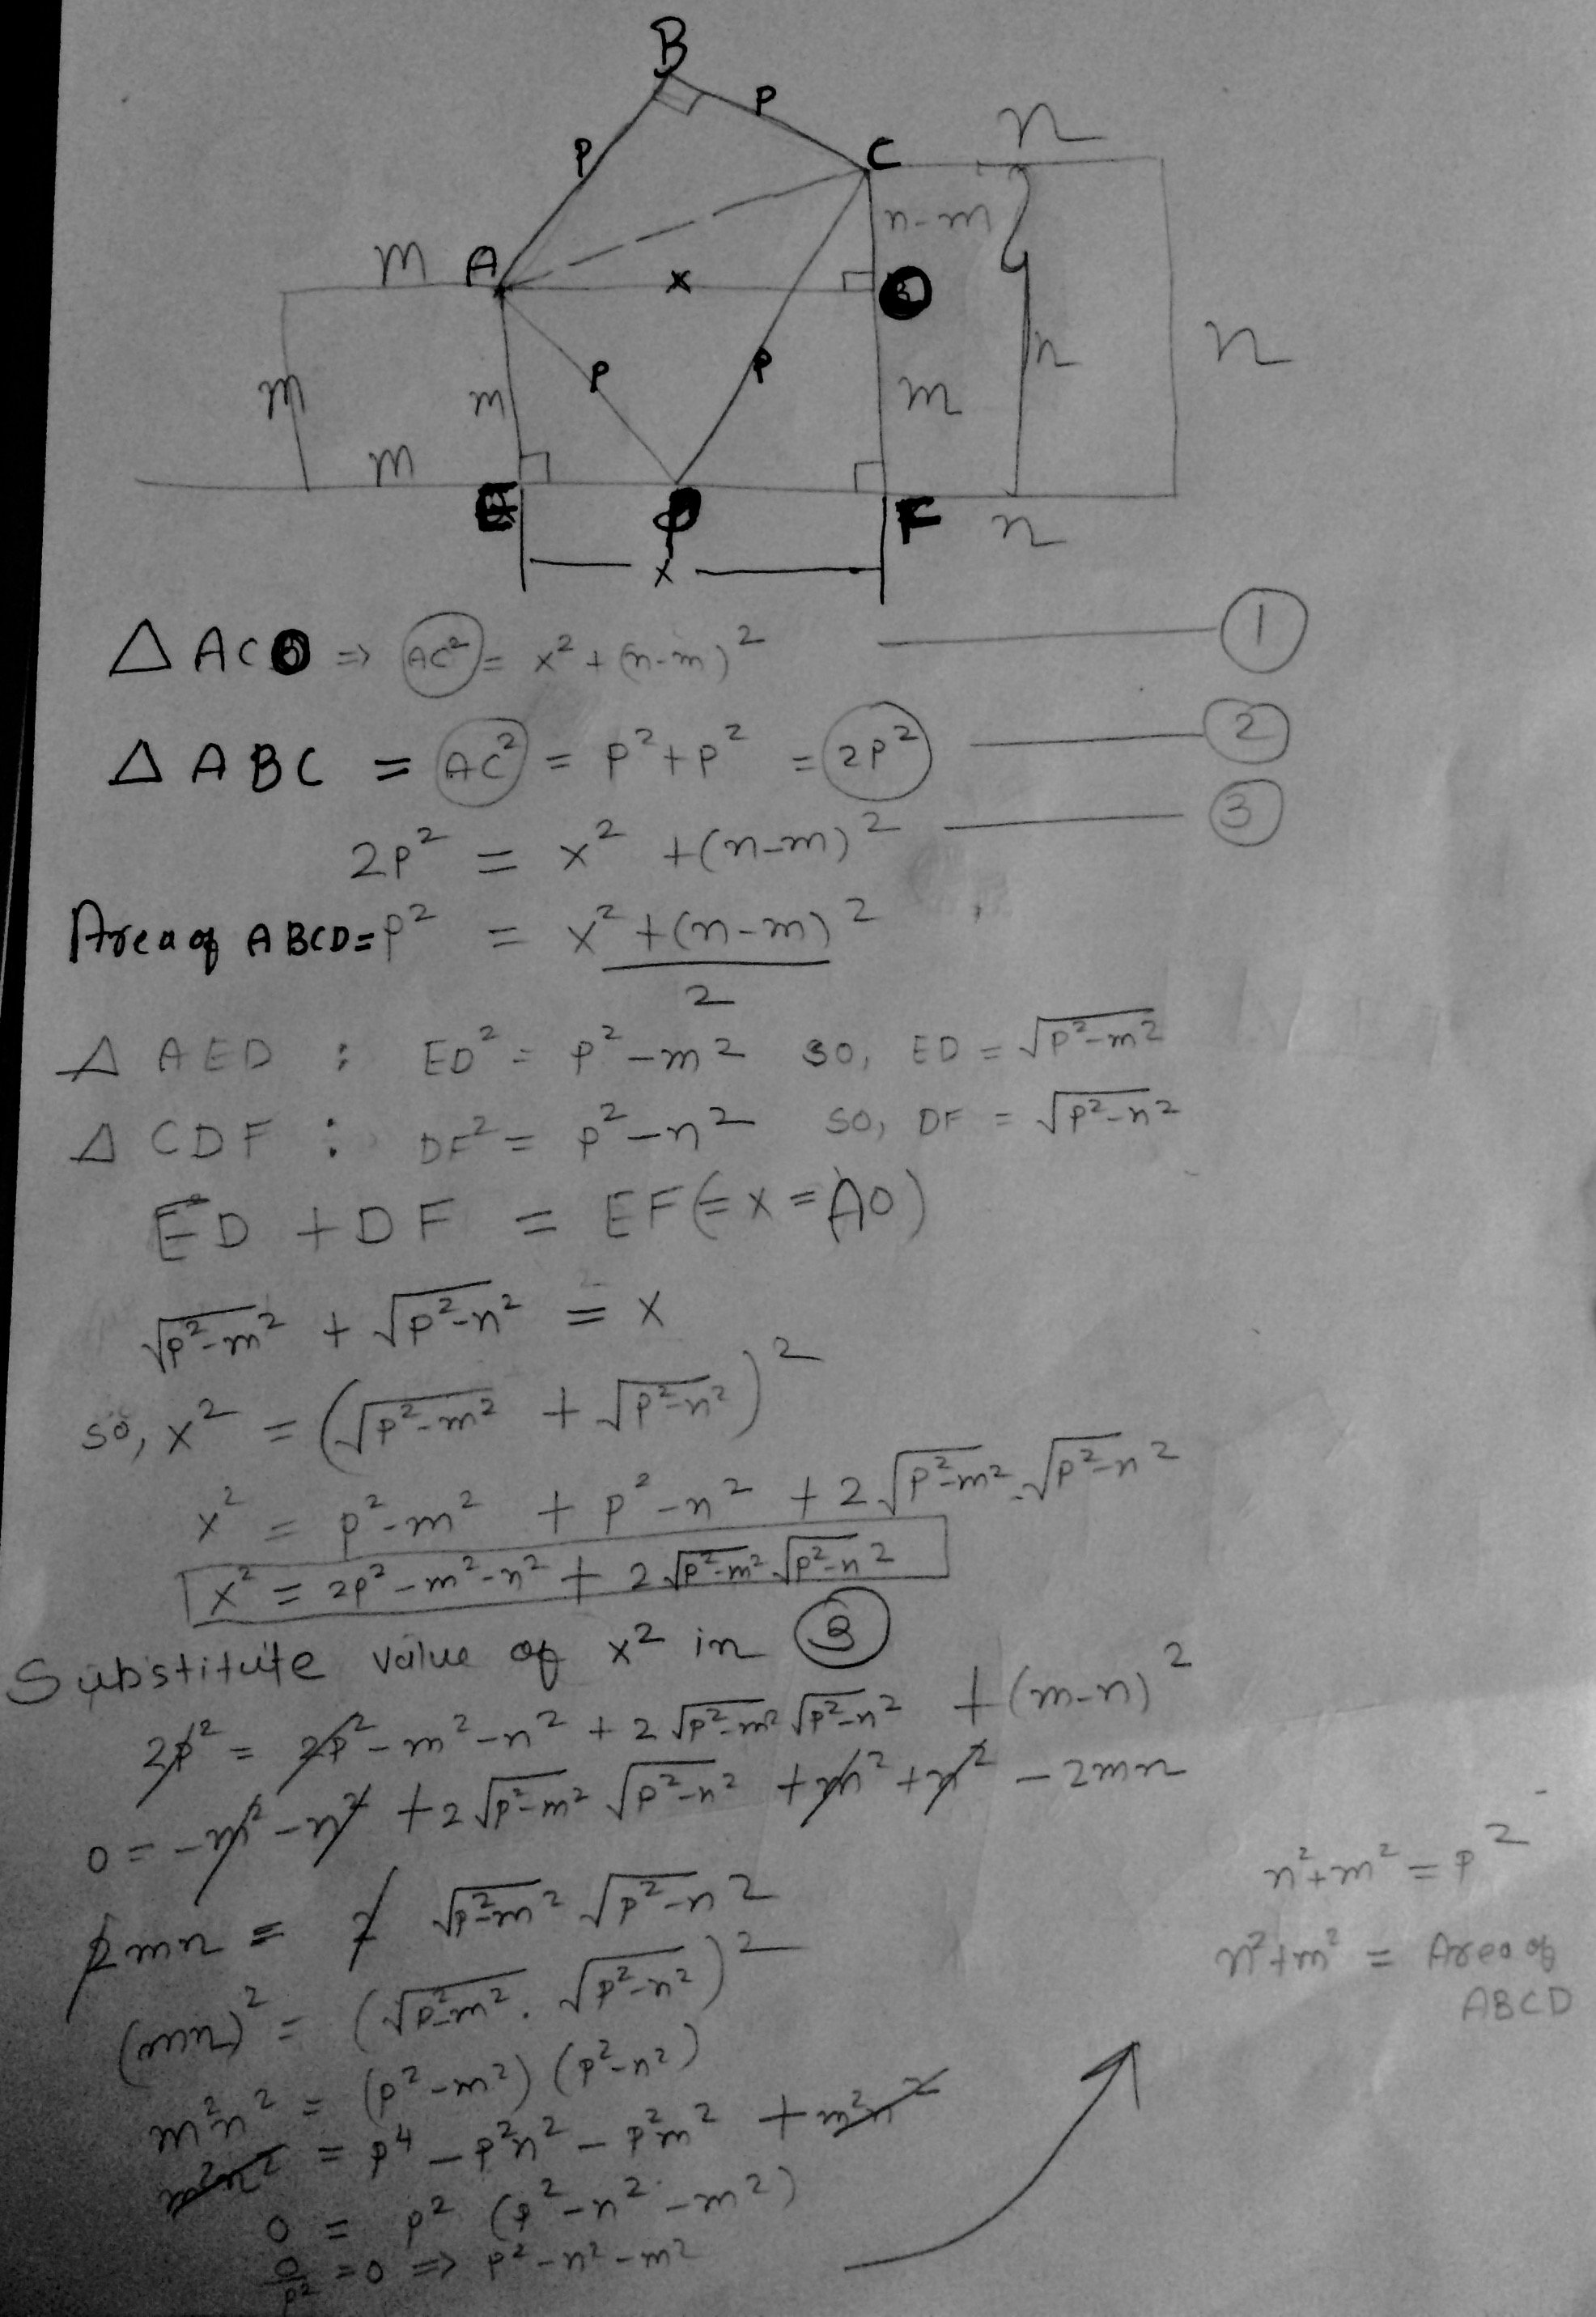 B
P
P
C
n
n-m
m A
x
O
m
m
P
P
m
n
n
m
E
D
F
n
x
△ ACO => AC² = x² + (n-m)² ——— 1
△ ABC = AC² = P² + P² = 2P² ——— 2
2P² = x² + (n-m)² ——— 3
Area of ABCD = P² = x² + (n-m)² / 2
△ AED : ED² = P² - m² so, ED = √P²-m²
△ CDF : DF² = P² - n² so, DF = √P²-n²
ED + DF = EF (= x = AO)
√P²-m² + √P²-n² = x
so, x² = (√P²-m² + √P²-n²)²
x² = P²-m² + P²-n² + 2√P²-m² . √P²-n²
x² = 2P²-m²-n² + 2√P²-m² √P²-n²
Substitute value of x² in 3
2P² = 2P²-m²-n² + 2√P²-m² √P²-n² + (m-n)²
0 = -m²-n² + 2√P²-m² √P²-n² + m² + n² - 2mn
2mn = 2 √P²-m² √P²-n²
(mn)² = (√P²-m² . √P²-n²)²
m²n² = (P²-m²) (P²-n²)
m²n² = P⁴ - P²n² - P²m² + m²n²
0 = P² (P²-n²-m²)
0/P² = 0 => P²-n²-m²
n²+m² = P²
n²+m² = Area of
ABCD